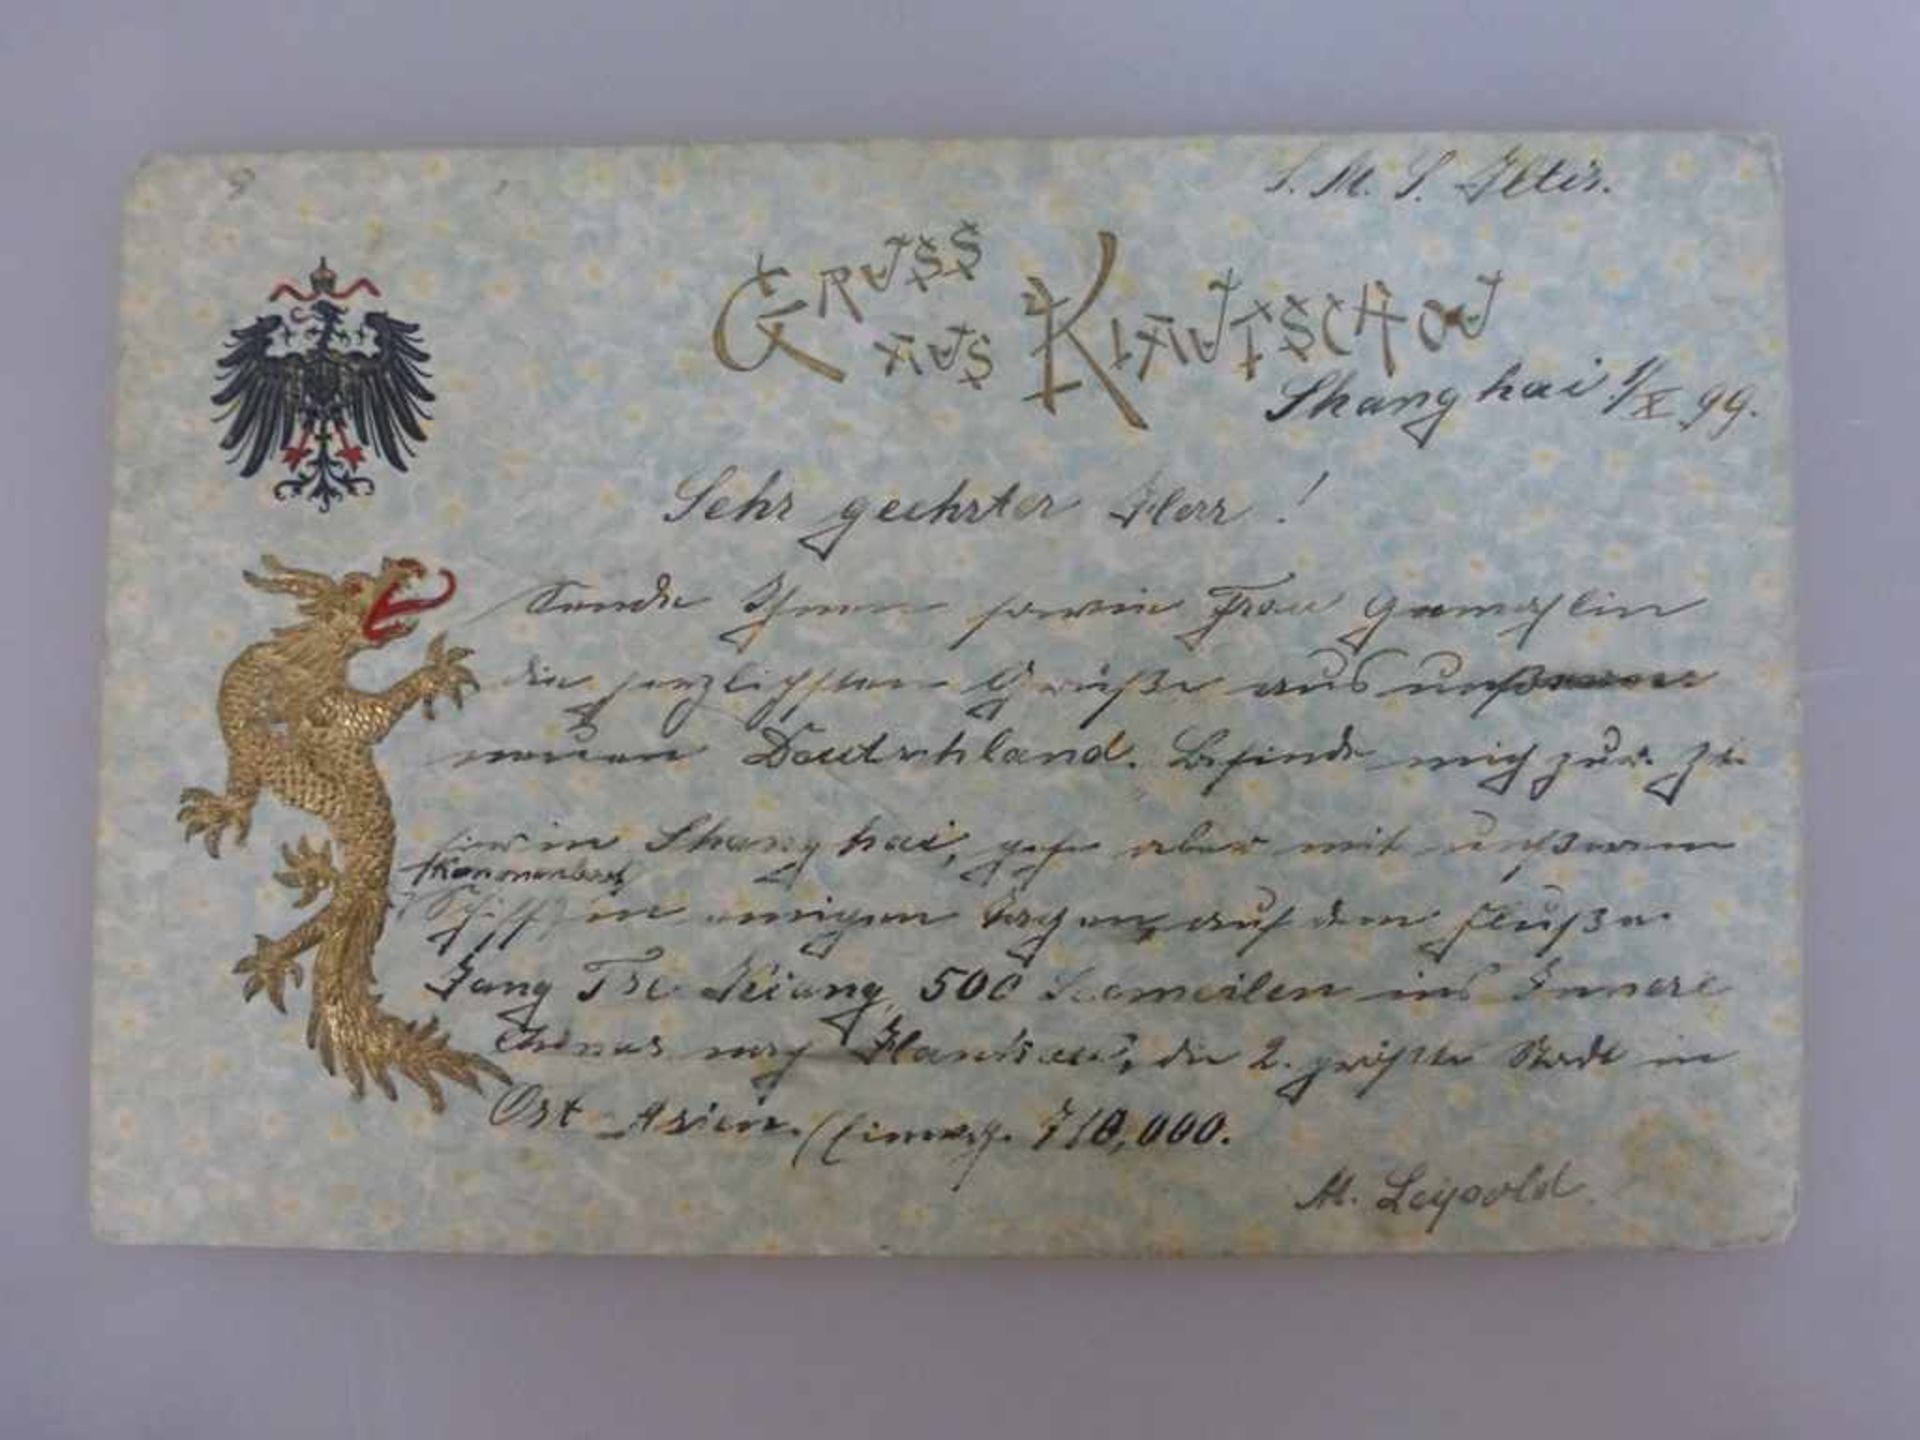 S. M. S. Iltis.
GRUSS
AUS KIAUTSCHOU
Shanghai 1/X 99.
Sehr geehrter Herr!
Sende Ihnen sowie Frau Gemahlin
die herzlichsten Grüße aus unßerem
neuen Deutschland. Befinde mich zur Zt.
hier in Shanghai, gehe aber mit unßerem
(Kanonenboot)
Schiff in einigen Tagen auf dem Fluße
Jang Tse Kiang 500 Seemeilen ins Innere
Chinas nach Hankau, die 2. größte Stadt in
Ost Asien. (Einwoh. 710,000.
M. Leipold